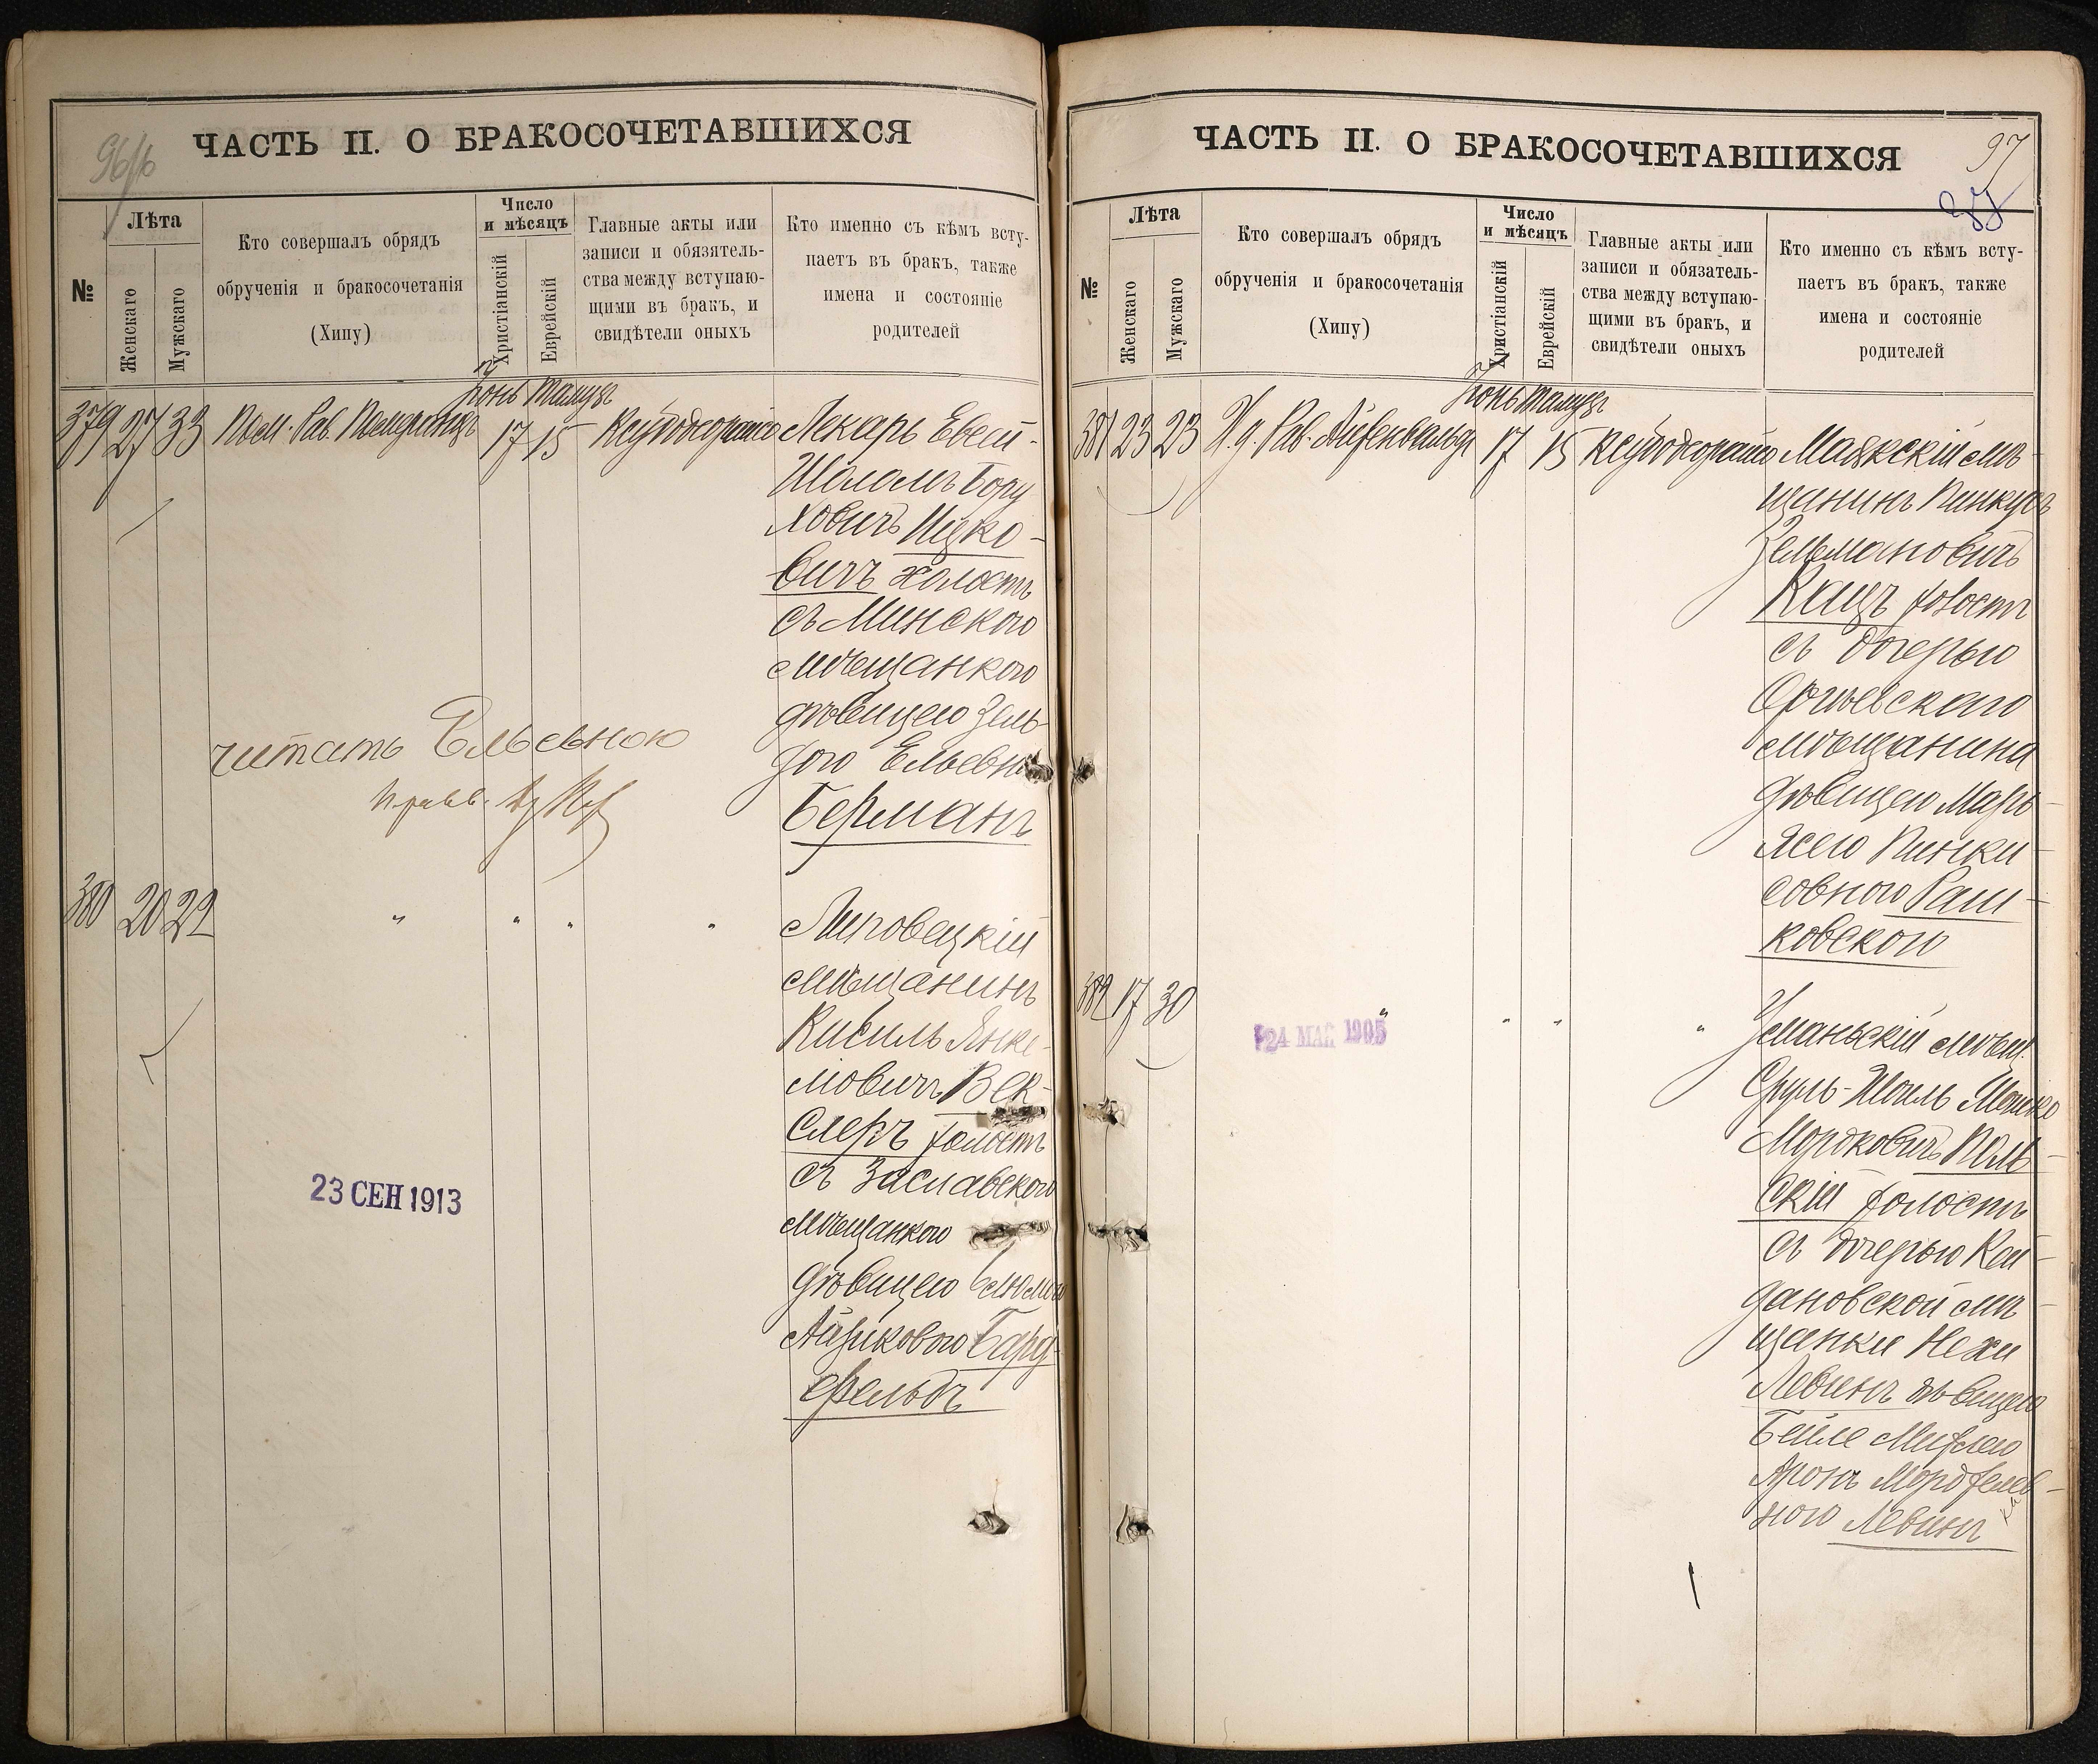 96/16
ЧАСТЬ II. О БРАКОСОЧЕТАВШИХСЯ
№
Лѣта
Женскаго
Мужскаго
Кто совершалъ обрядъ
обрученія и бракосочетанія
(Хипу)
Число
и мѣсяцъ
Христіанскій
Еврейскій
Главные акты или
записи и обязятель-
ства между вступаю-
щими въ бракъ, и
свидѣтели оныхъ
Кто именно съ кѣмъ всту-
паетъ въ бракъ, также
имена и состояніе
родителей
Іюнь Тамузъ
379 27 33 Пом. Рав. Померанцъ 17 15 Лекарь Евсей-
Шоломъ Бору
ховичъ Ицко-
вичъ холостъ
съ Минскою
мѣщанкою
дѣвицею Зель
дою Ельевн
Берманъ
читать Ельевною
380 20 22 " " " " Липовецкій
мѣщанинъ
Кисиль Янке-
лiовичъ Век-
слеръ холостъ
съ Заславскою
мѣщанкою
дѣвицею
Айзиковою Бард-
фельдъ
23 СЕН 1913
97
ЧАСТЬ II. О БРАКОСОЧЕТАВШИХСЯ
№
Лѣта
Женскаго
Мужскаго
Кто совершалъ обрядъ
обрученія и бракосочетанія
(Хипу)
Число
и мѣсяцъ
Христіанскій
Еврейскій
Главные акты или
записи и обязатель-
ства между вступаю-
щими въ бракъ, и
свидѣтели оныхъ
Кто именно съ кѣмъ всту-
паетъ въ бракъ, также
имена и состояніе
родителей
Іюнь Тамузъ
381 23 23 И.д. Рав. Айзенвальдъ 17 15 Маякскій мѣ-
щанинъ Пинкусъ
Зельмановичъ
Кацъ холостъ
съ дочерью
Оргѣевскаго
мѣщанина
дѣвицею Марь-
ясею Пинки-
совною Раш-
ковскою
382 17 30 " " " " Уманьскій мѣщ.
Сруль-Шоиль Мошко
Мордковичъ Поль-
скій холостъ
съ дочерью Кой-
дановской мѣ-
щанки Нехи
Левинъ дѣвицею
Бейле
Аронъ Мордхелев-
ною Левинъ
24 МАЙ 1905